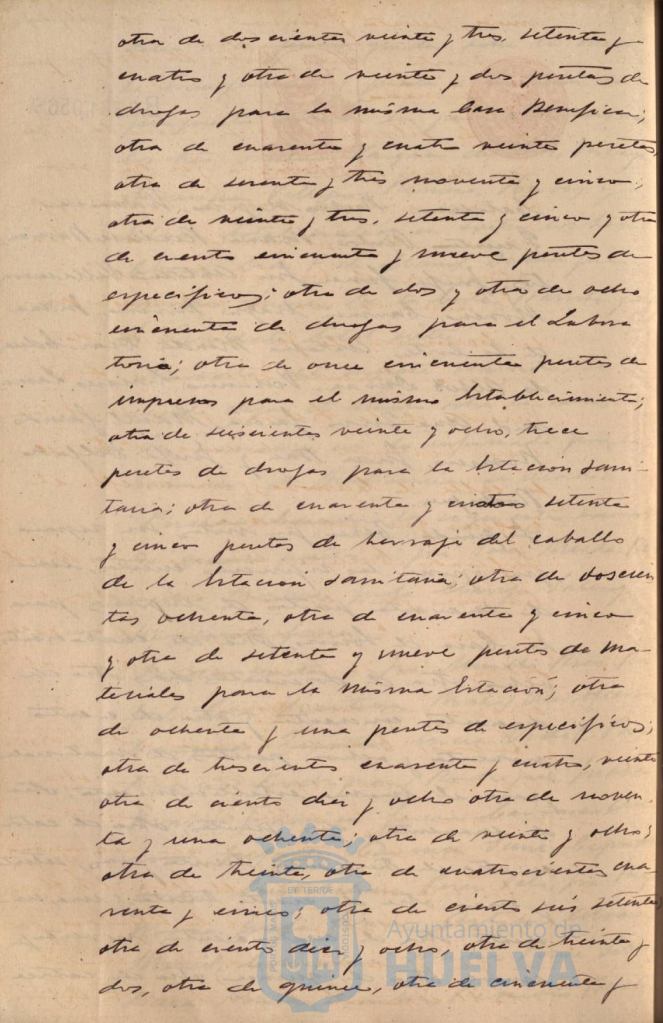 otra de doscientas veinte y tres, setenta y
cuatro y otra de veinte y dos pesetas de
drogas para la misma Casa Benefica;
otra de cuarenta y cuatro veinte pesetas,
otra de sesenta y tres noventa y cinco;
otra de veinte y tres, setenta y cinco y otra
de ciento cincuenta y nueve pesetas de
especificos; otra de dos y otra de ocho
cincuenta de drogas para el Labora
torio; otra de once cincuenta pesetas de
impresos para el mismo Establecimiento;
otra de seiscientas veinte y ocho, trece
pesetas de drogas para la Estacion Sani-
taria; otra de cuarenta y cuatro setenta
y cinco pesetas de herraje del caballo
de la Estacion Sanitaria; otra de doscien
tas ochenta, otra de cuarenta y cinco
y otra de setenta y nueve pesetas de ma-
teriales para la misma Estación; otra
de ochenta y una pesetas de especificos;
otra de trescientas cuarenta y cuatro, veinte
otra de ciento diez y ocho otra de noven-
ta y una ochenta; otra de veinte y ocho;
otra de treinta, otra de cuatrocientas cua
renta y cinco; otra de ciento seis setenta
otra de ciento diez y ocho, otra de treinta y
dos, otra de quince, otra de cincuenta y
Ayuntamiento de
HUELVA